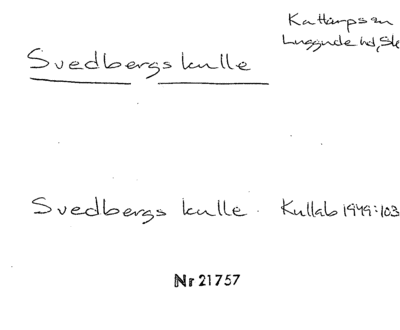 Kattarps sn
Luggude hd, Sk
Svedbergs kulle
Svedbergs kulle. Kullab 1949:103
Nr 21757